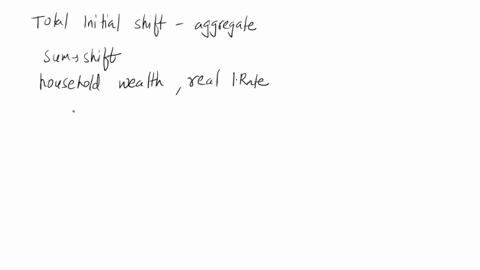 Total Initial shift - aggregate
sum→shift
household wealth, real I.Rate